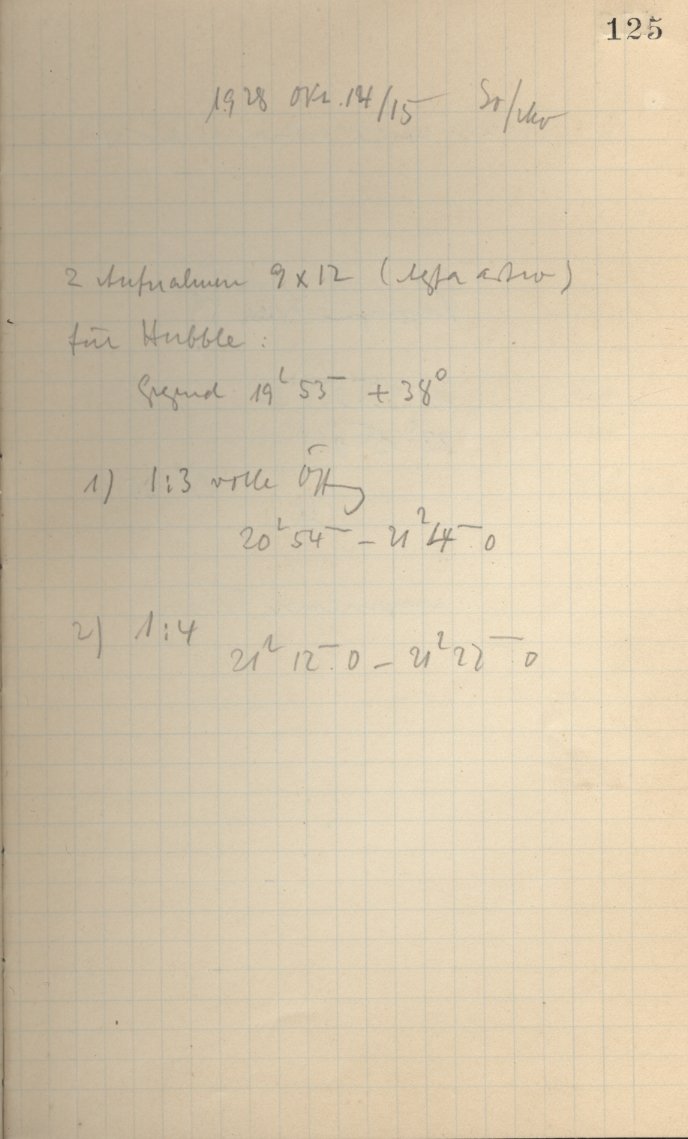 125
1928 Okt. 14/15 So/Mo
2 Aufnahmen 9 x 12 (Agfa astro)
für Hubble:
Gegend 19ʰ 53ᵐ + 38⁰
1) 1:3 volle Öffng
20ʰ 54ᵐ – 21ʰ 4ᵐ.0
2) 1:4
21ʰ 12ᵐ.0 – 21ʰ 22ᵐ.0